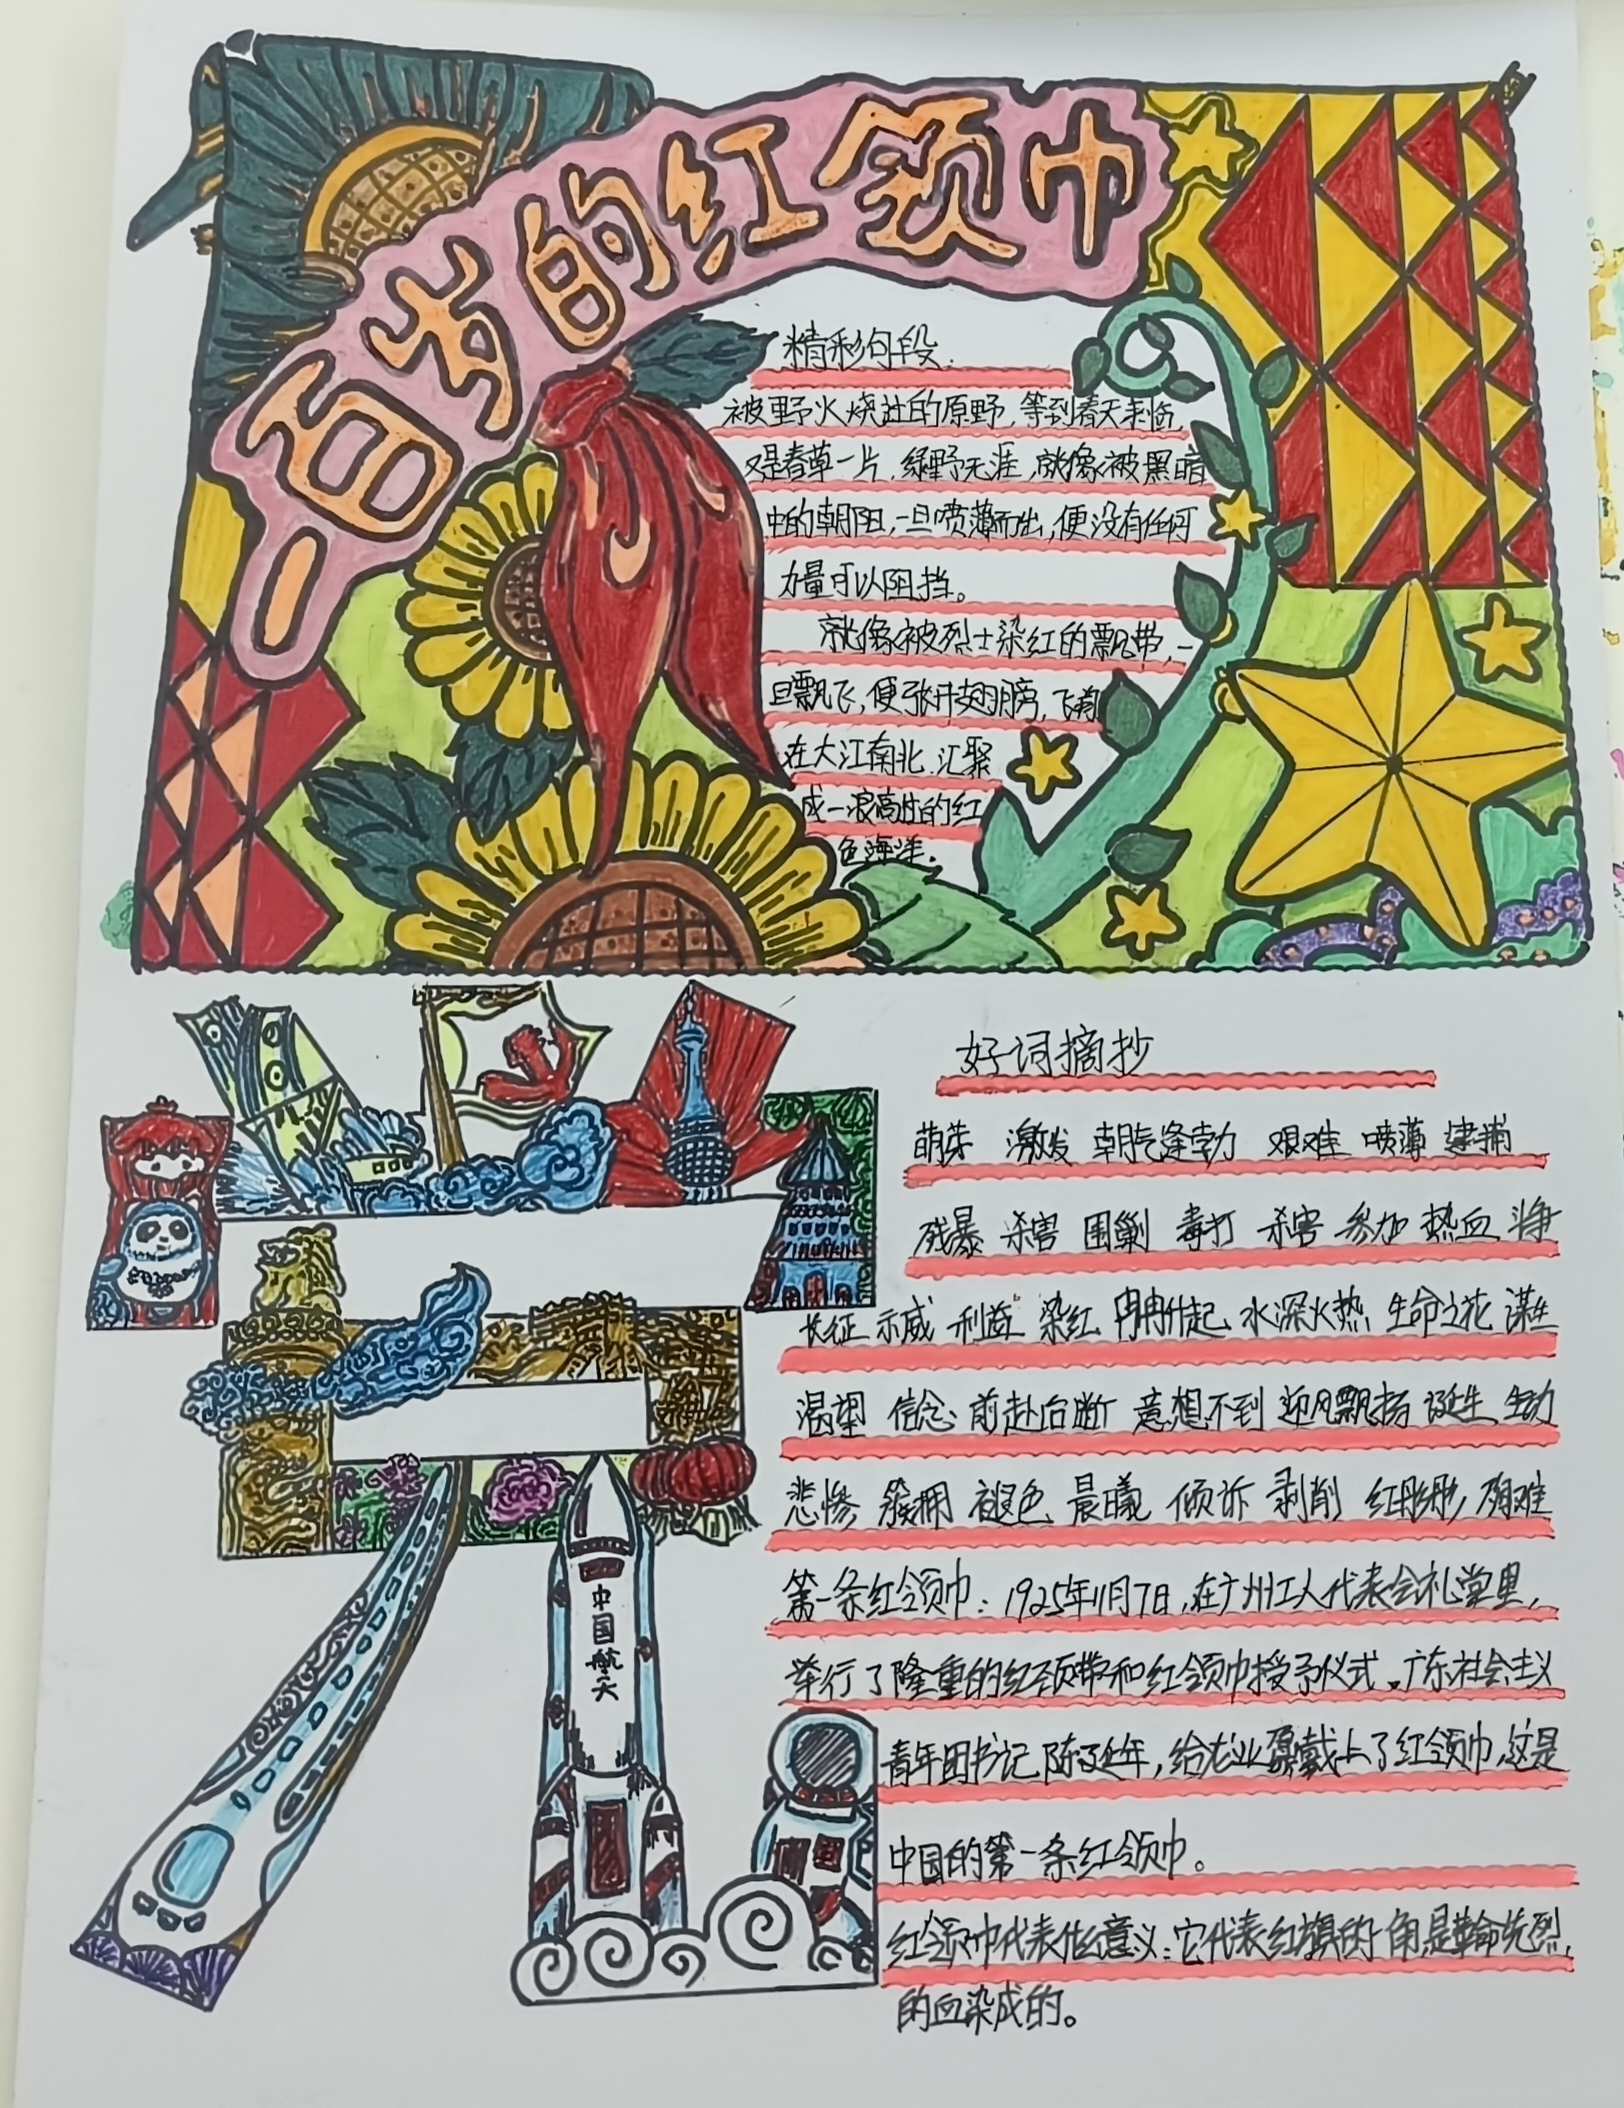 一百岁的红领巾
精彩句段.
被野火烧过的原野,等到春天来临,
又是春草一片,绿野无涯,就像被黑暗
中的朝阳,一旦喷薄而出,便没有任何
力量可以阻挡。
就像被烈士染红的飘带,一
旦飘飞,便张开翅膀,飞翔
在大江南北,汇聚
成一浪高过的红
色海洋.
好词摘抄
萌芽 激发 朝气蓬勃 艰难 喷薄 逮捕
残暴 杀害 围剿 毒打 杀害 参加 热血 斗争
长征 示威 利益 染红 冉冉升起 水深火热 生命之花 谋生
渴望 信念 前赴后断 意想不到 迎风飘扬 诞生 生动
悲惨 簇拥 褪色 晨曦 倾诉 剥削 红彤彤 殉难
第一条红领巾:1925年11月7日,在广州工人代表会礼堂里,
举行了隆重的红领带和红领巾授予仪式。广东社会主义
青年团书记陈延年,给龙业鼎戴上了红领巾,这是
中国的第一条红领巾。
红领巾代表什么意义:它代表红旗的一角是革命先烈
的血染成的。
中国航天